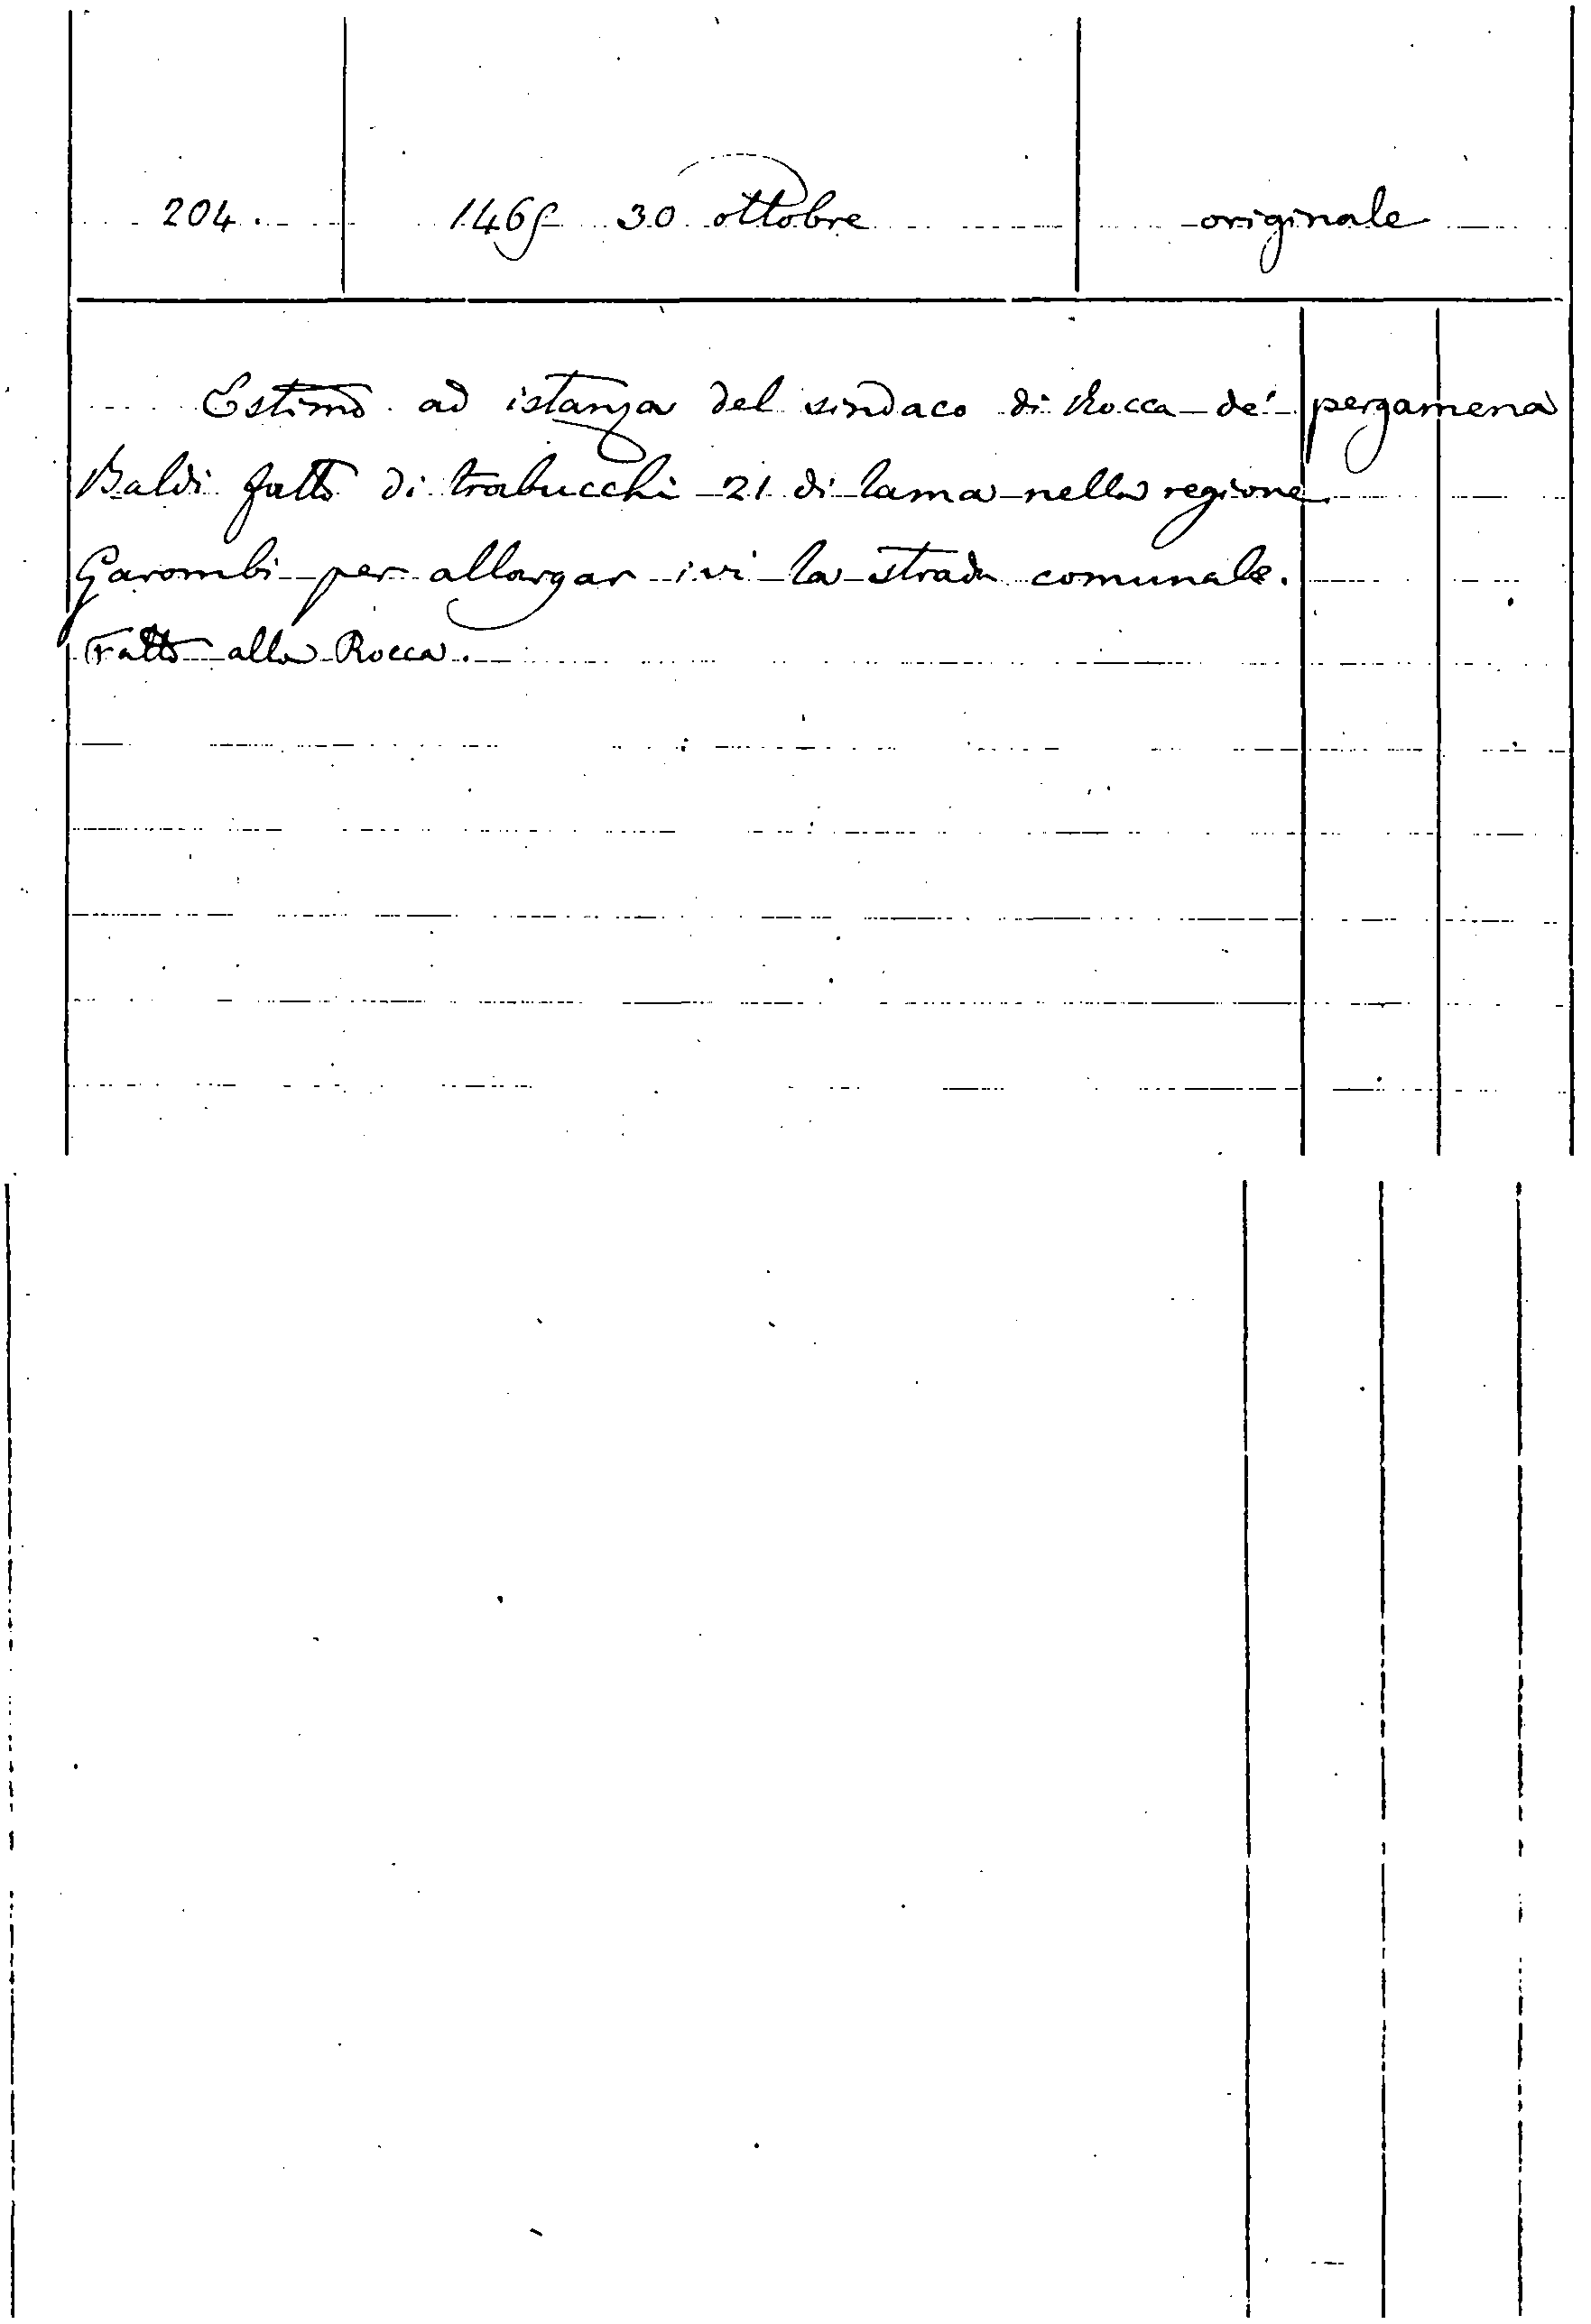 204. 1465 30 ottobre originale
Estimo ad istanza del sindaco di Rocca de' pergamena
Baldi fatto di trabucchi 21 di lama nella regione
Garombi per allargar ivi la strada comunale.
Fatto alla Rocca.